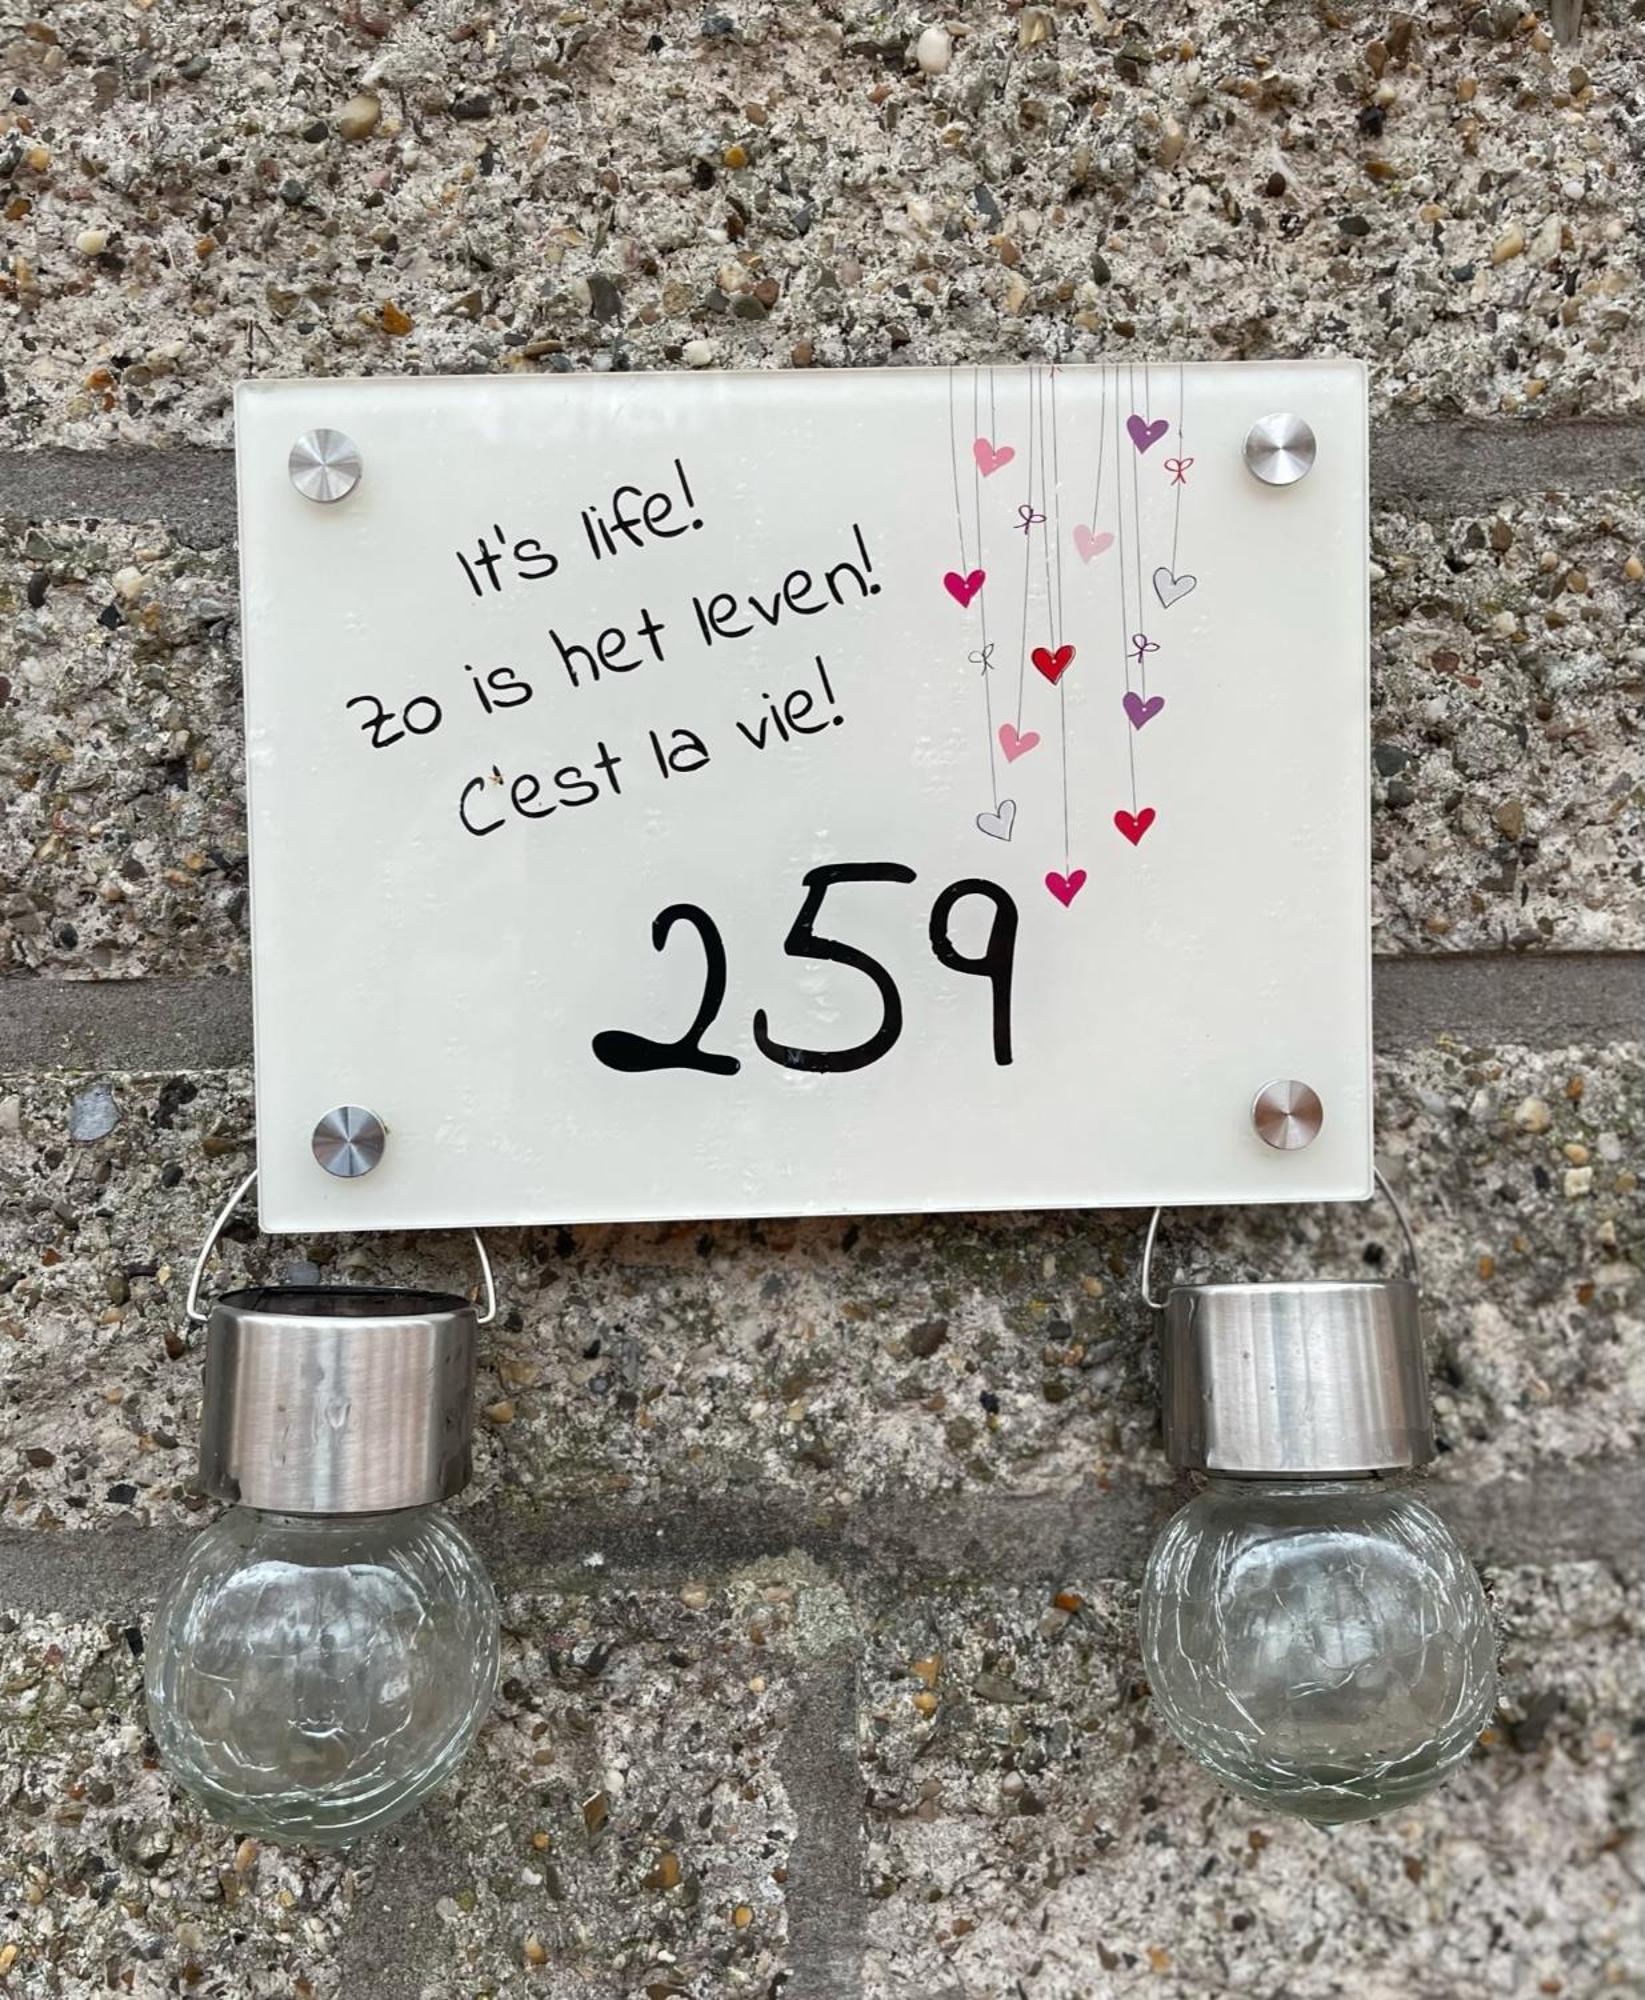 It's life!
Zo is het leven!
C'est la vie!
259